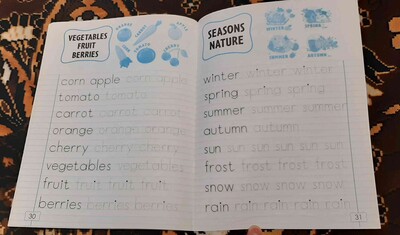 VEGETABLES
FRUIT
BERRIES
corn apple corn apple
tomato tomato
carrot carrot carrot
orange orange orange
cherry cherry cherry
vegetables vegetables
fruit fruit fruit fruit
berries berries berries
30
SEASONS
NATURE
WINTER
SPRING
SUMMER
AUTUMN
winter winter winter
spring spring spring
summer summer summer
autumn autumn
sun sun sun sun sun
frost frost frost frost
snow snow snow snow
rain rain rain rain rain
31